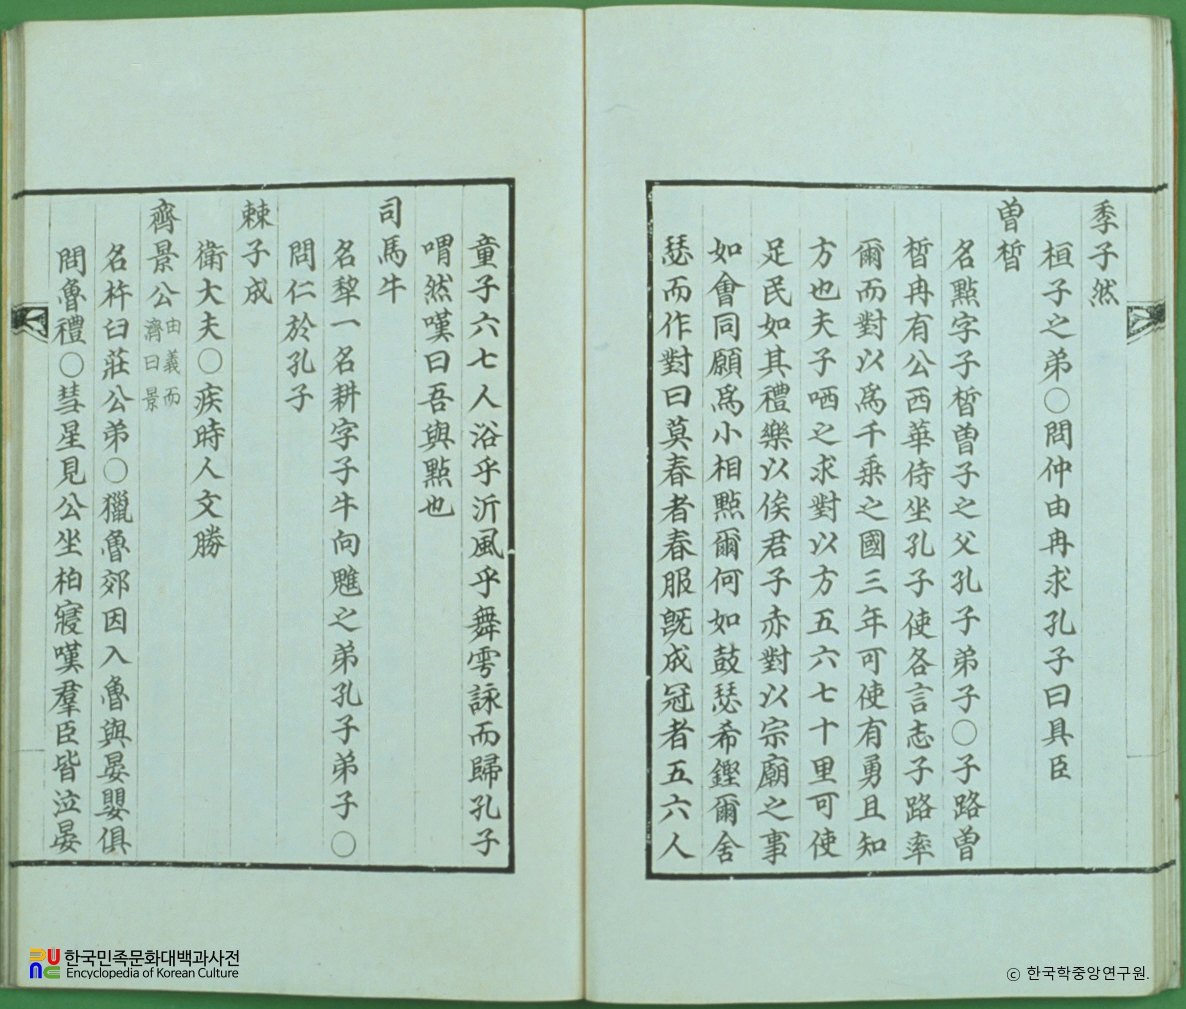 季子然
桓子之弟○問仲由冉求孔子曰具臣
曽晳
名點字子晳曽子之父孔子弟子○子路曽
晳冉有公西華侍坐孔子使各言志子路率
爾而對以爲千乗之國三年可使有勇且知
方也夫子哂之求對以方五六七十里可使
足民如其禮樂以俟君子赤對以宗廟之事
如會同願爲小相點爾何如鼓瑟希鏗爾舍
瑟而作對曰莫春者春服旣成冠者五六人
童子六七人浴乎沂風乎舞雩詠而歸孔子
喟然嘆曰吾與點也
司馬牛
名犂一名耕字子牛向魋之弟孔子弟子○
問仁於孔子
棘子成
衛大夫○疾時人文勝
齊景公由義而
濟曰景
名杵臼莊公弟○獵魯郊因入魯與晏嬰俱
問魯禮○彗星見公坐柏寢嘆羣臣皆泣晏
한국민족문화대백과사전
Encyclopedia of Korean Culture
© 한국학중앙연구원.